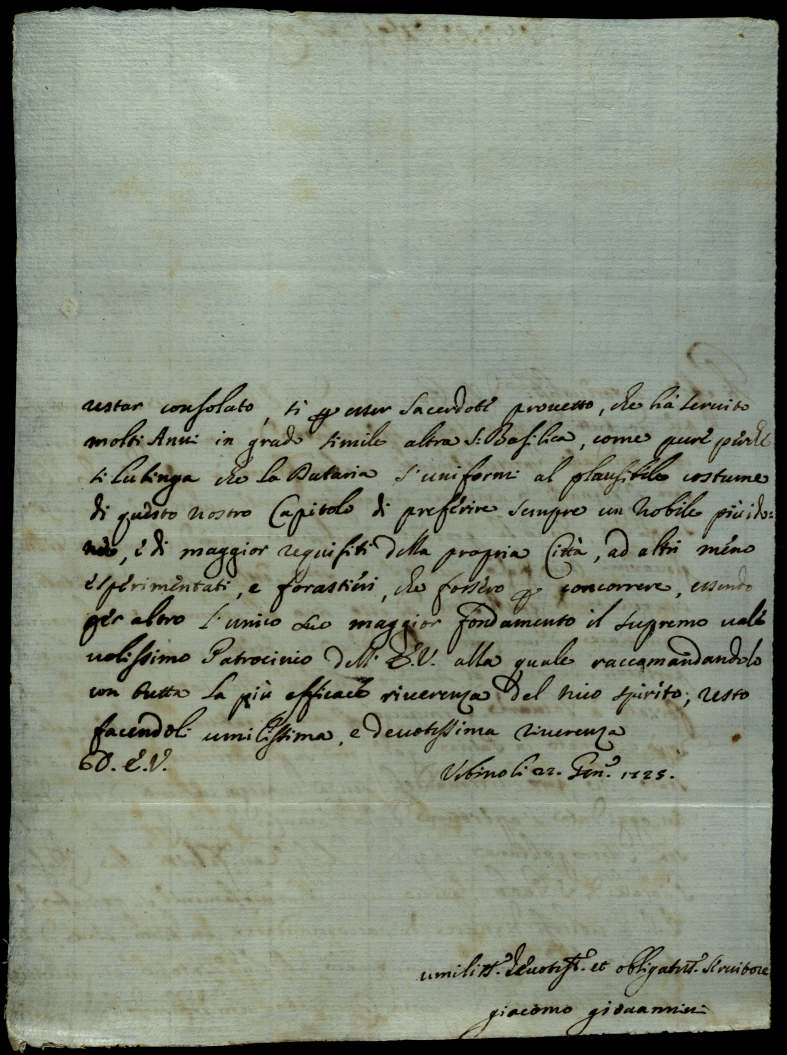 restar consolato, si per esser Sacerdote provetto, che hà servito
molti Anni in grado simile altra S. Basilica, come pure perche
si lusinga che la Dataria s'uniformi al plausibile costume
di questo nostro Capitolo di preferire sempre un Nobile più ido=
neo, e di maggior requisiti della propria Città, ad altri meno
esperimentati, e forastieri, che fossero per concorrere, essendo
per altro l'unico suo maggior fondamento il supremo vale
volissimo Patrocinio dell' E.V. alla quale raccomandandolo
con tutta la più efficace riverenza del mio spirito, resto
facendoli umilissima, e devotissima riverenza
D. E.V. Urbino li 22. Gen.º 1725.
umiliss.º devotiss.º et obligatiss.º Servitore
giacomo giovannini